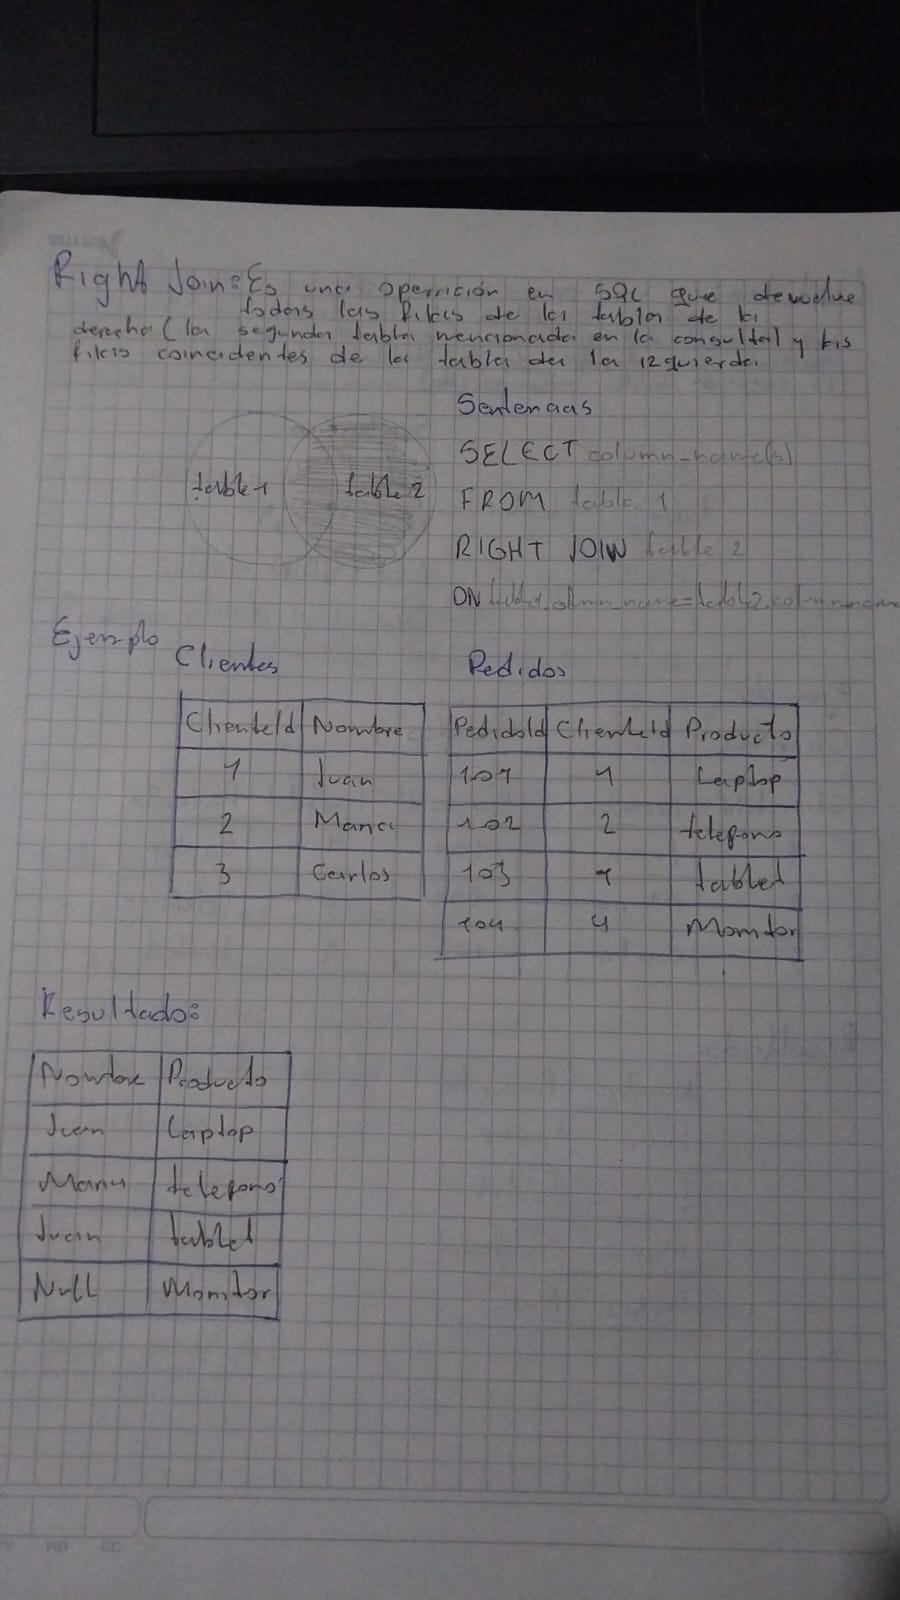 Right Join: Es una operación en SQL que devuelve
todas las filas de la tabla de la
derecha (la segunda tabla mencionada en la consulta) y las
filas coincidentes de la tabla de la izquierda.
Sentencias
SELECT column_name(s)
FROM table 1
RIGHT JOIN table 2
ON table1.column_name=table2.column_name
table 1 table 2
Ejemplo
Clientes
ClienteId Nombre
1 Juan
2 Maria
3 Carlos
Pedidos
PedidoId ClienteId Producto
101 1 Laptop
102 2 telefono
103 1 tablet
104 4 Monitor
Resultado:
Nombre Producto
Juan Laptop
Maria telefono
Juan tablet
Null Monitor